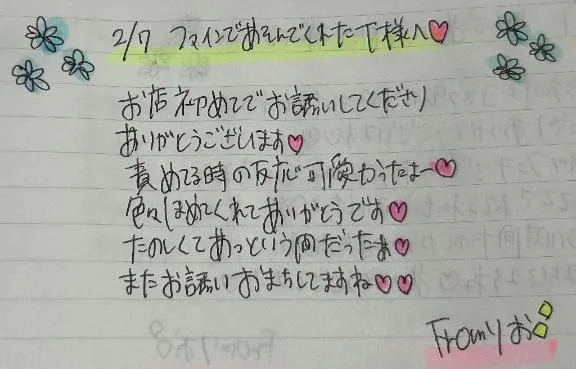 2/7 ファインであそんでくれたT様へ♡
お店初めてでお誘いしてくださり
ありがとうございます♡
責めてる時の反応可愛かったなー♡
色々ほめてくれてありがとうです♡
たのしくてあっという間だったぁ♡
またお誘いおまちしてますね♡♡
Fromりお